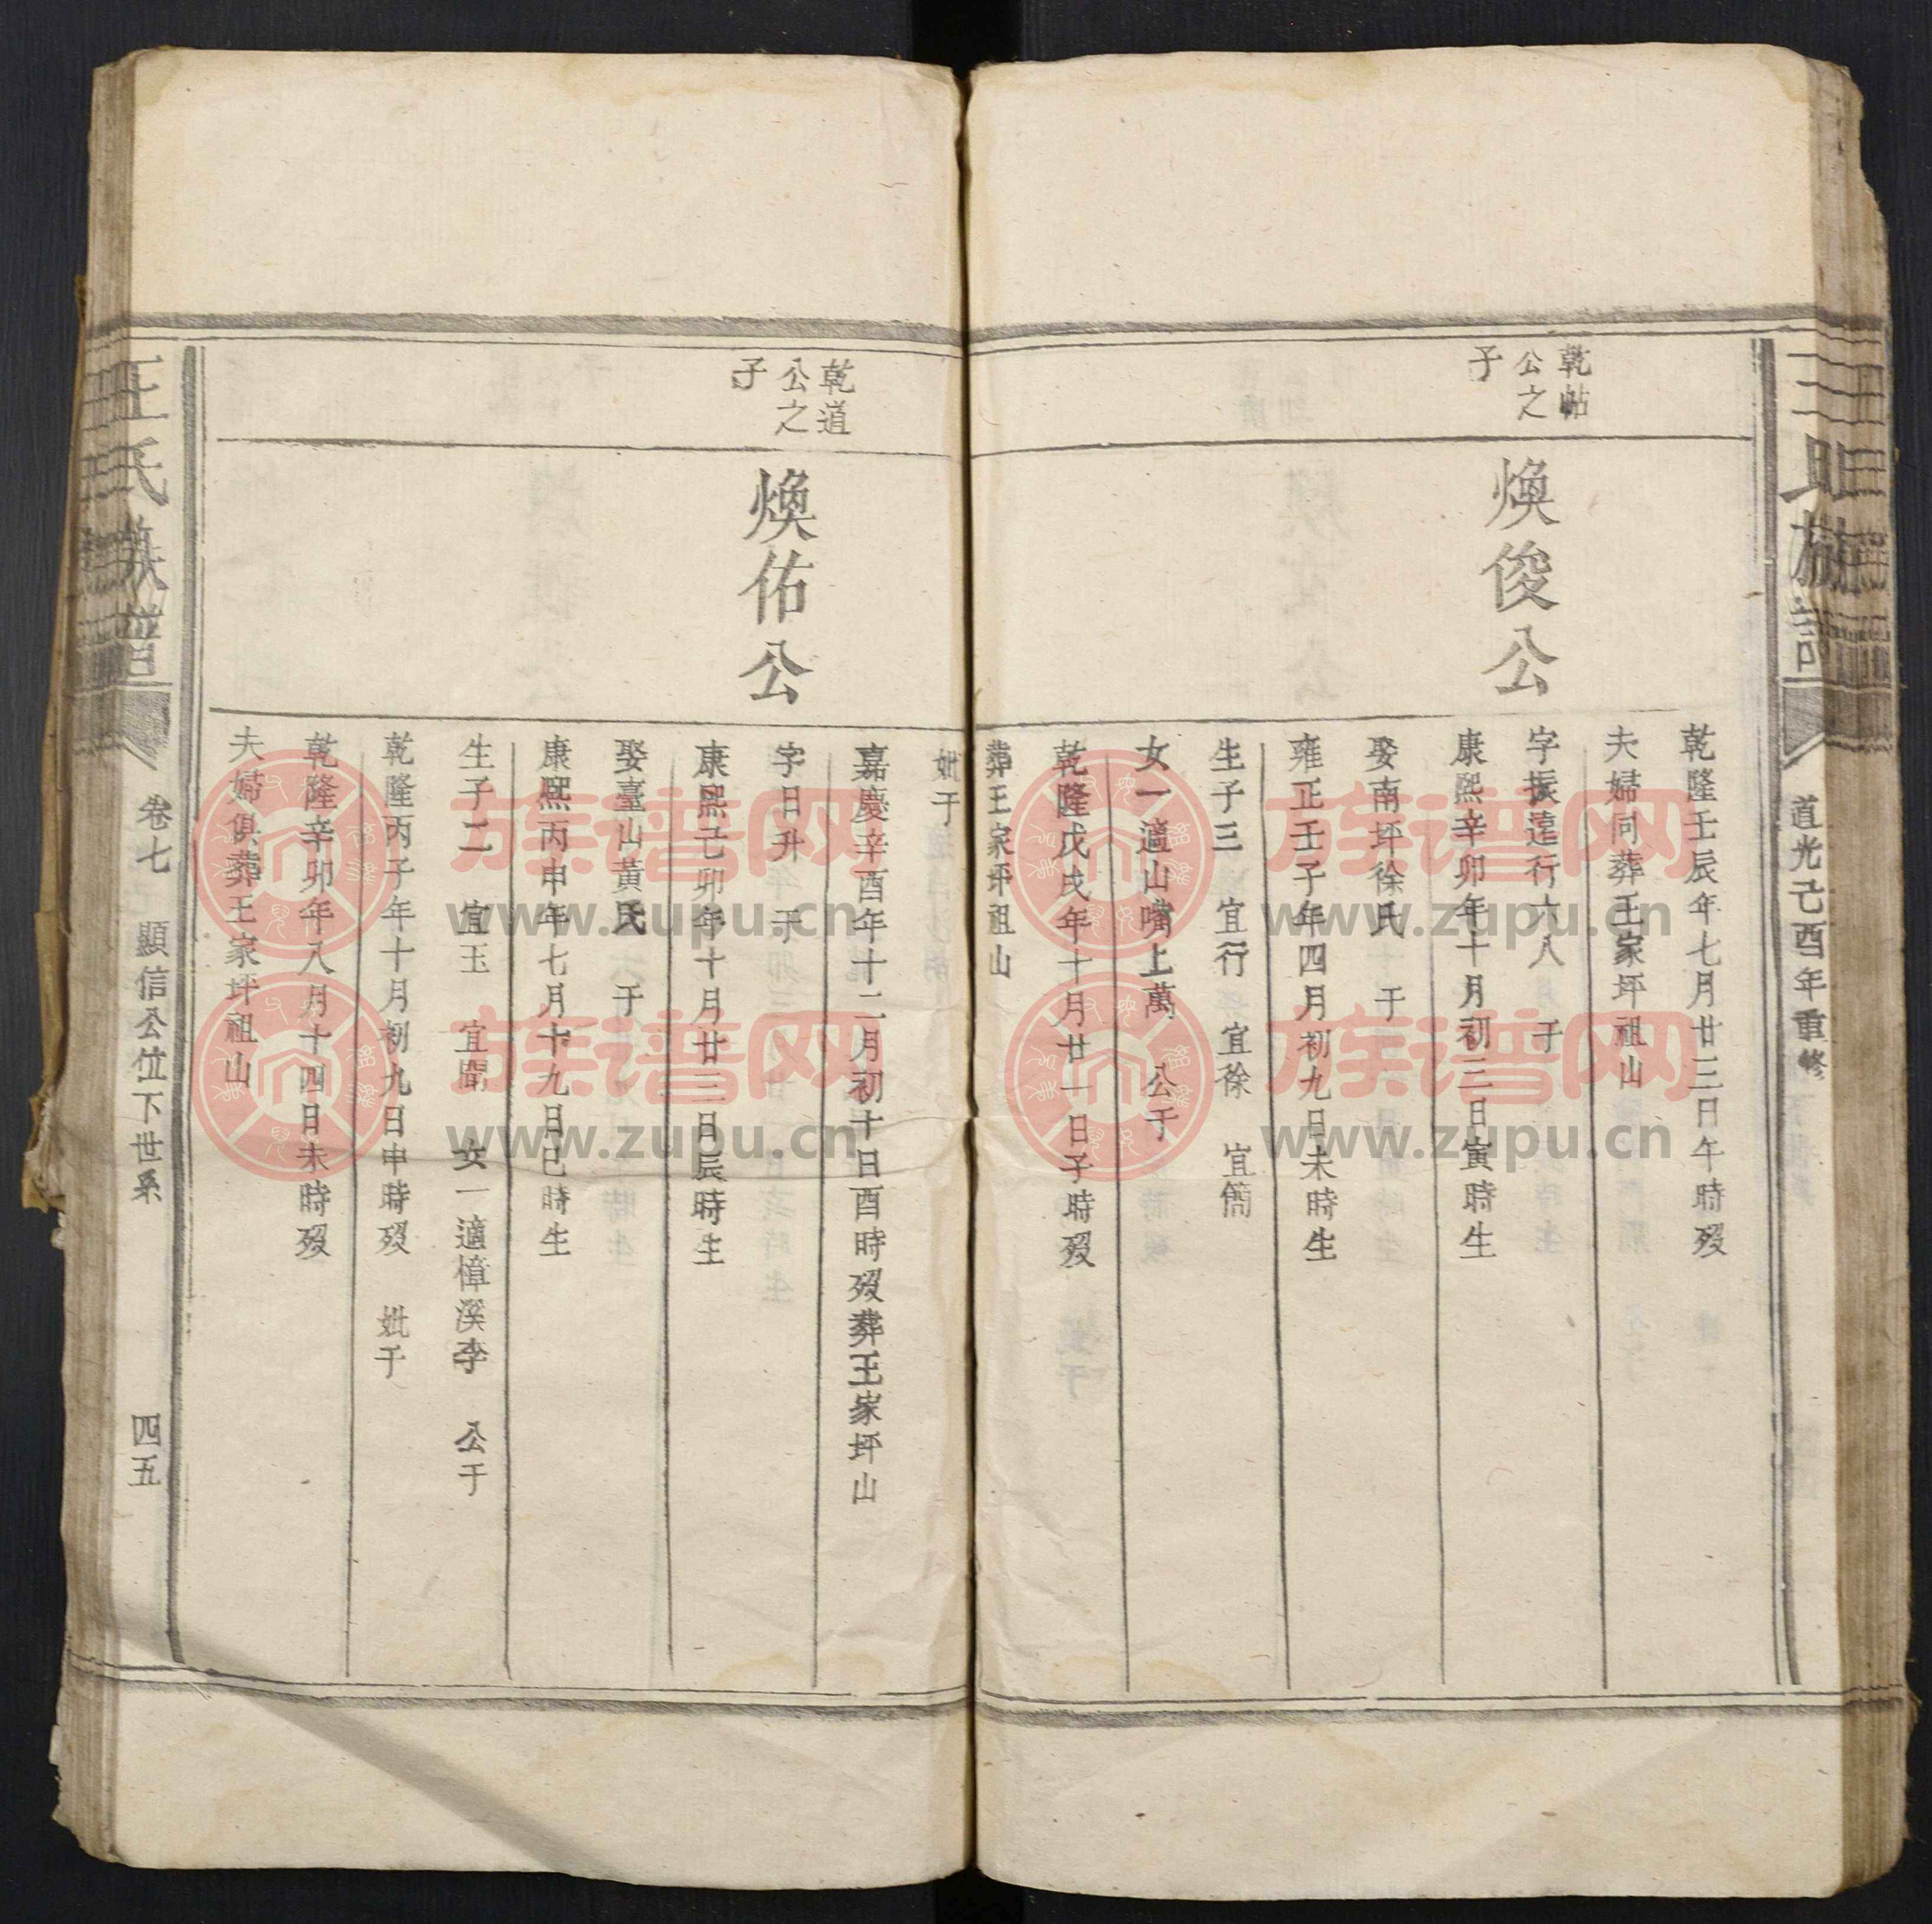 王氏族譜
道光己酉年重修
乾帖
公之
子
煥俊公
乾隆壬辰年七月廿三日午時歿
夫婦同葬王家坪祖山
字振遠行六八　于
康熙辛卯年十月初三日寅時生
娶南坪徐氏　于
雍正壬子年四月初九日未時生
生子三　宜行　宜徐　宜簡
女一適山嘴上萬　公于
乾隆戊戌年十月廿一日子時歿
葬王家坪祖山
妣于
乾道
公之
子
煥佑公
嘉慶辛酉年十二月初十日酉時歿葬王家坪山
字日升　于
康熙己卯年十月廿三日辰時生
娶臺山黃氏　于
康熙丙申年七月十九日巳時生
生子二　宜玉　宜聞　女一適樟溪李　公于
乾隆丙子年十月初九日申時歿　妣于
乾隆辛卯年八月十四日未時歿
夫婦俱葬王家坪祖山
王氏族譜
卷七　顯信公位下世系　四五
族谱网
www.zupu.cn
族谱网
www.zupu.cn
族谱网
www.zupu.cn
族谱网
www.zupu.cn